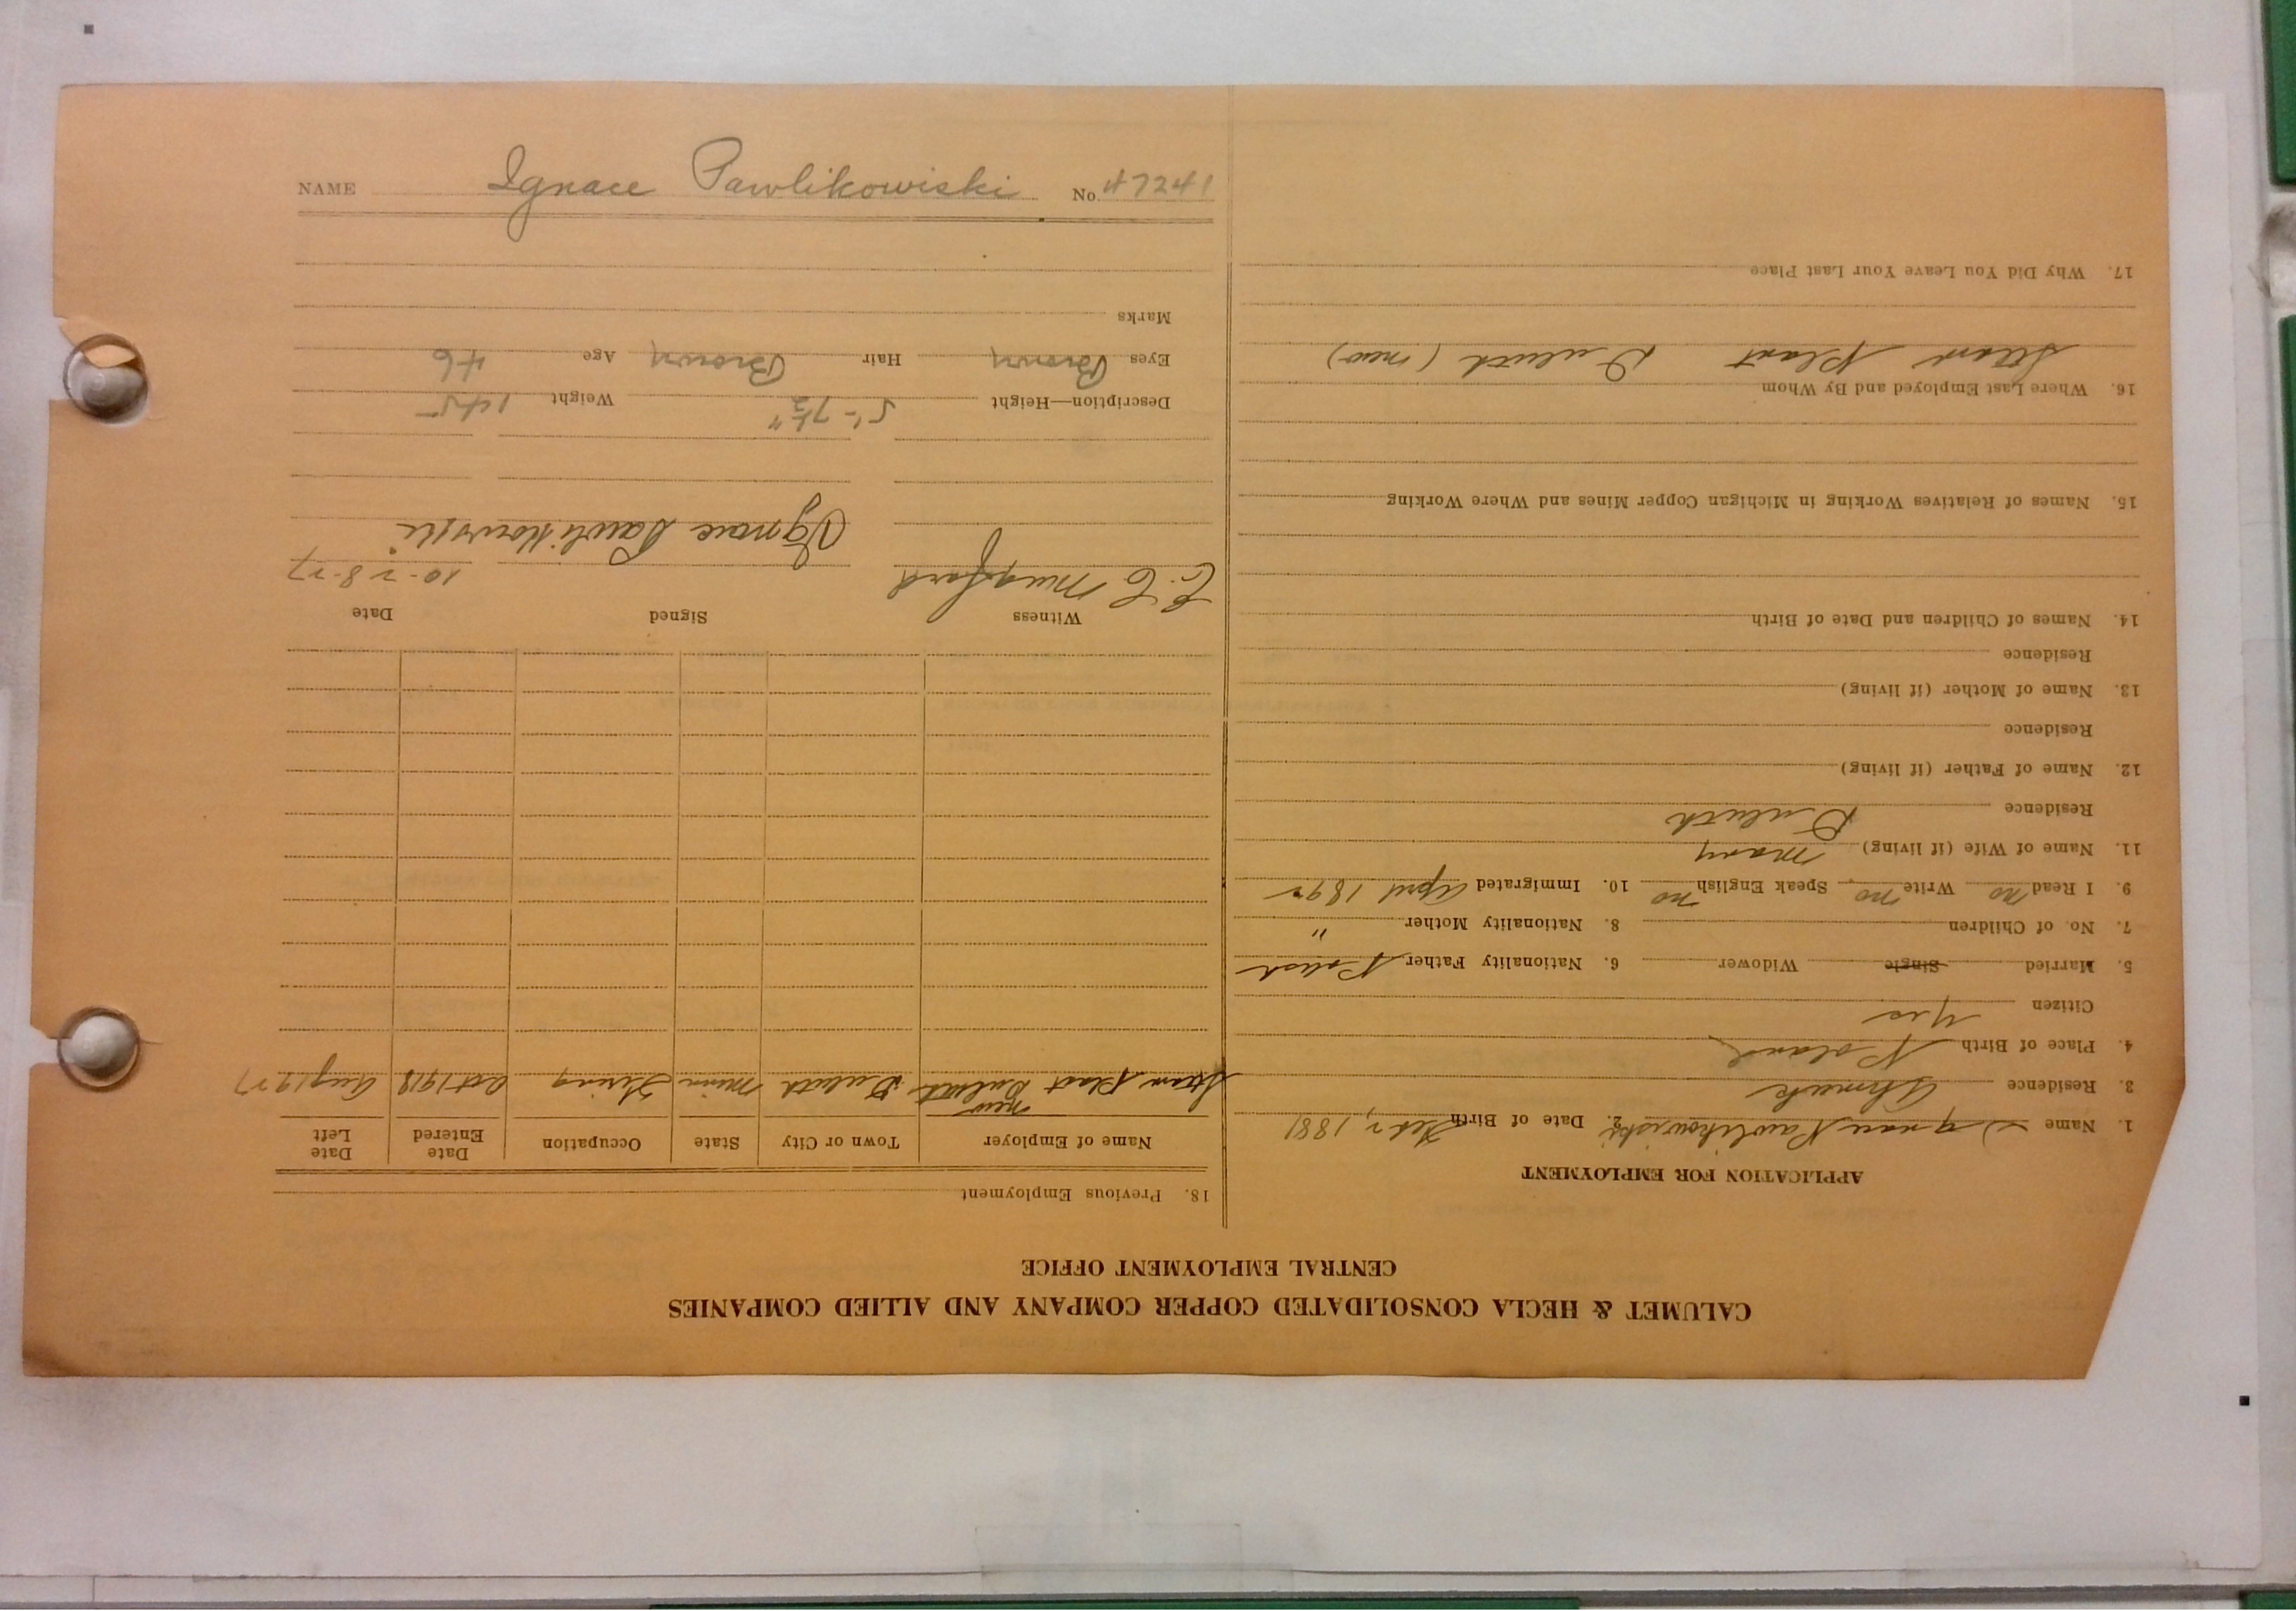 NAME Ignace Pawlikowiski No. 47241
CALUMET & HECLA CONSOLIDATED COPPER COMPANY AND ALLIED COMPANIES
CENTRAL EMPLOYMENT OFFICE
APPLICATION FOR EMPLOYMENT
1. Name Ignace Pawlikowiski 2. Date of Birth Feb 2, 1881
3. Residence Ahmeek
4. Place of Birth Poland
Citizen Yes
5. Married Single Widower 6. Nationality Father Polish
7. No. of Children 8. Nationality Mother "
9. I Read no Write no Speak English no 10. Immigrated April 1892
11. Name of Wife (if living) Mary
Residence Duluth
12. Name of Father (if living)
Residence
13. Name of Mother (if living)
Residence
14. Names of Children and Date of Birth
15. Names of Relatives Working in Michigan Copper Mines and Where Working
16. Where Last Employed and By Whom
Steam Plant Duluth (new)
17. Why Did You Leave Your Last Place
18. Previous Employment
Name of Employer Town or City State Occupation Date Entered Date Left
Steam Plant Duluth new Duluth Minn Firing Oct 1918 Aug 1927
Witness Signed Date
E. C. Mugford Ignace Pawlikowski 10-28-27
Description—Height 5'-7½" Weight 145
Eyes Brown Hair Brown Age 46
Marks